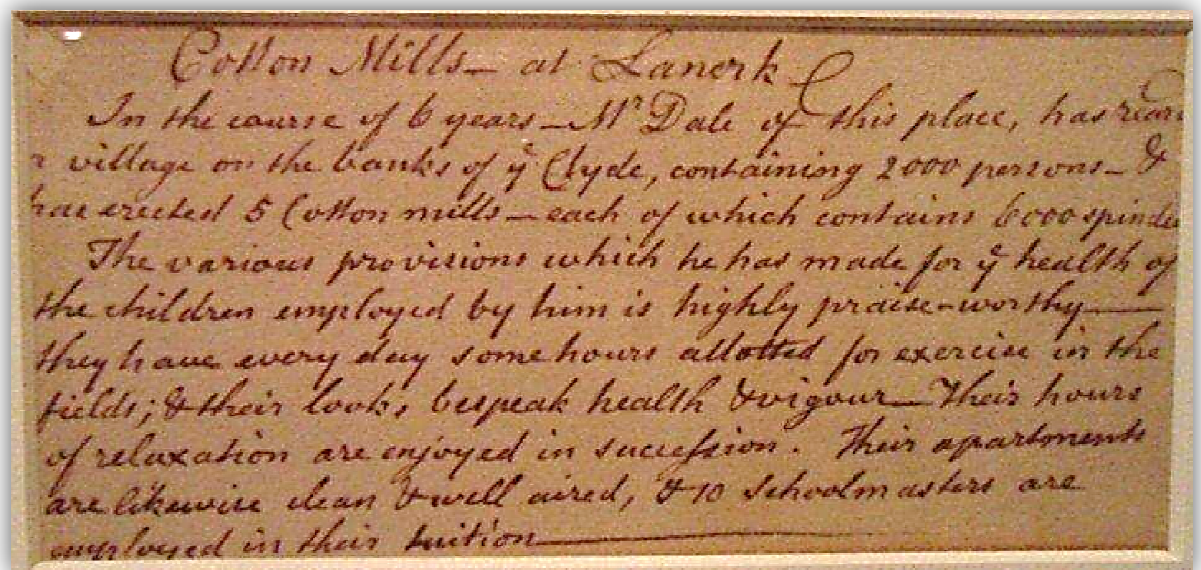 Cotton Mills — at Lanerk
In the course of 6 years — Mr Dale of this place, has rear
a village on the banks of ye Clyde, containing 2000 persons — &
has erected 5 Cotton mills — each of which contains 6000 spindle
The various provisions which he has made for ye health of
the children employed by him is highly praise-worthy —
they have every day some hours allotted for exercise in the
fields; & their looks bespeak health & vigour — Their hours
of relaxation are enjoyed in succession. Their apartments
are likewise clean & well aired, & 10 Schoolmasters are
employed in their tuition —